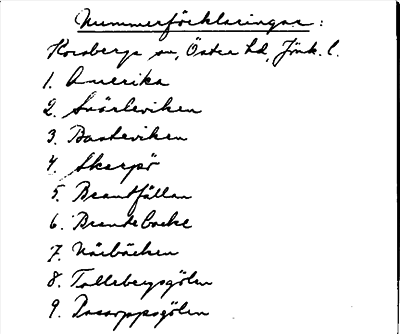 Nummerförklaringar:
Korsberga sn, Östra hd, Jönk. l.
1. Amerika
2. Snörleviken
3. Basteviken
4. Skarpö
5. Brantfällan
6. Brandebacke
7. Närbäcken
8. Tallebergsgölen
9. Dasoppsgölen